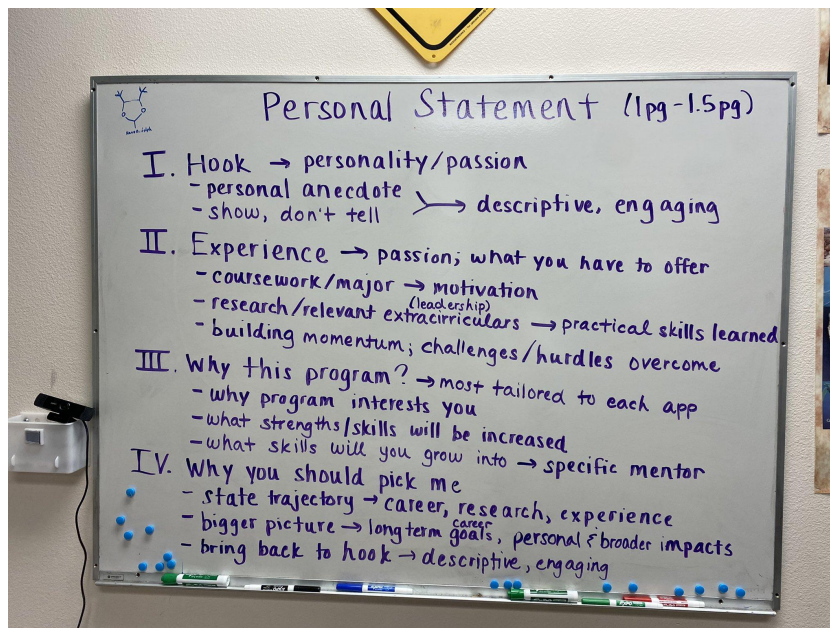 Personal Statement (1pg-1.5pg)
I. Hook → personality/passion
- personal anecdote
- show, don't tell → descriptive, engaging
II. Experience → passion; what you have to offer
- coursework/major → motivation
(leadership)
- research/relevant extracirriculars → practical skills learned
- building momentum; challenges/hurdles overcome
III. Why this program? → most tailored to each app
- why program interests you
- what strengths/skills will be increased
- what skills will you grow into → specific mentor
IV. Why you should pick me
- state trajectory → career, research, experience
career
- bigger picture → long term goals, personal & broader impacts
- bring back to hook → descriptive, engaging